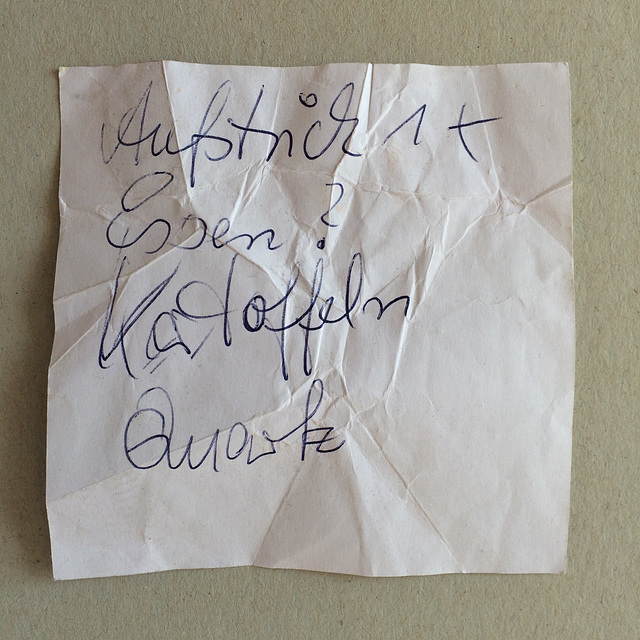 Aufstrich 1 +
Essen ?
Kartoffeln
Quark